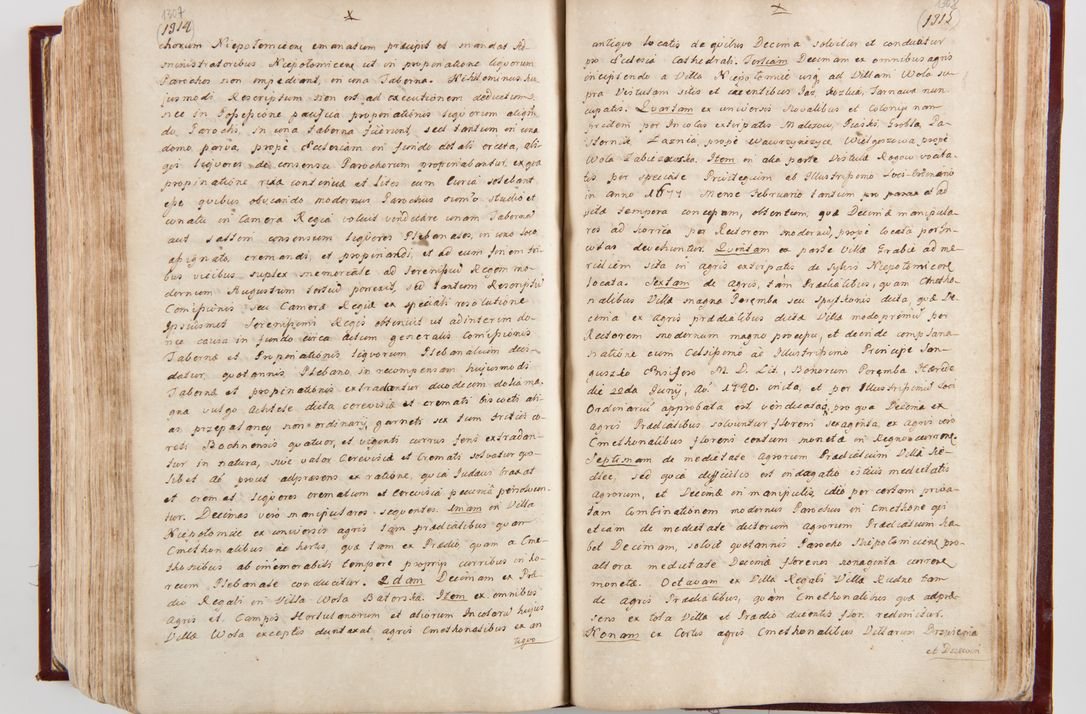 1307
(1314)
chorum Niepolomicene emanatum præcipit et mandat Ad-
ministratoribus Niepolomicene ut in propinatione liquorum
Parochos non impediant, in una Taberna. Nihilominus hu-
jusmodi Rescriptum non est ad executionem deductum,
nec in Possessione pacifica propinationis liquorum aliqui-
do Parochi, in una Taberna fuerunt, sed tantum in una
domo parva, propè Ecclesiam in fundo dotali erecta, ali-
qui liquores de consensu Parochorum propinabantur, ex qua
propinatione rixa continua et lites cum Curia solebant
esse quibus obviando modernus Parochus omni studio et
conatu in Camera Regia voluit vendicare unam Tabernam
aut saltem consensum liquores Plebanales, in uno loco
assignato, cremandi, et propinandi, et ad eum finem tri-
bus vicibus suplex memoriale ad Serenissimum Regem mo-
dernum Augustum tertium porrexit, sed tantum Rescriptum
Comissionis seu Camera Regiæ ex speciali resolutione
Ipsiusmet Serenissimi Regis obtinuit ut ad interim do-
nec causa in fundo circa actum generalis Comissionis
Taberna et Propinationis liquorum Plebanalium deci-
datur, quotannis Plebano in recompensam hujusmodi
Taberna et propinationis extradantur duodecim dolia ma-
gna vulgo Achtele dicta cerevisiæ et cremati bis cocti ali-
as przepalaney non ordinarij, garneti sex tum tritici co-
reti Bochnensis quatuor, et viginti currus feni extradan-
tur in natura, sive valor Cerevisiæ et Cremati solvatur quo-
libet ao prout adpræsens ex ratione, quia Judæus braxat
et cremat liquores crematum et cerevisia pecunia persolven-
tur. Decimas verò manipulares sequentes. Imam in Villa
Niepolomice ex universis agris tam prædialibus quam
Cmethonalibus ac hortis, quæ tam ex Prædio, quam a Cme-
thonibus ab immemorabili tempore proprijs curribus in ho-
reum Plebanale conducitur. 2dam Decimam ex Præ-
dio Regali in Villa Wola Batorska. Item ex omnibus
Agris et Campis Hortulanorum et aliorum Incolarum hujus
Villæ Wola exceptis duntaxat agris Cmethonalibus ex an
tiquo
1308
(1315)
antiquo locatis de quibus Decima solvitur et conducitur
pro Ecclesia Cathedrali. Tertiam Decimam ex omnibus agris
incipiendo a Villa Niepolomice usq ad Villam Wola su-
pra Vistulam sitis et jacentibus Jaz, Kozlica, Tarnawa nun-
cupatis. Quartam ex universis Novalibus et Colonijs nam
pridem per Incolas extirpatis Malesow, Piaski Grobla, Pa-
sternik Laznia, propè Wawrzynczyce Wielgoszowa propè
Wola Zabierzowska. Item in alia parte Vistulæ Rogow vocita-
tis per speciale Privilegium ab Illustrissimo Loci Ordinario
in anno 1677 Mense Februario tantum pro panxe et ad
sua tempora concessam, obtentum, quæ Decimæ manipula-
res ad horrea per Rectorem modernum, propè locata perin-
cutas devehuntur. Quintam ex parte Villæ Grabie ad me-
ridiem sita in agris extirpatis de Sylvis Niepolomicene
locata. Sextam de agris, tam Prædialibus, quam Cmetho-
nalibus Villæ magna Poremba seu Spytkonis dicta, quæ De-
cima ex agris prædialibus dictæ Villæ modo præmisso per
Rectorem modernum magno processu, et deinde complana-
natione cum Celsissimo ac Illustrissimo Principe San-
guszko Pnsifero M. D. Lit., Bonorum Poremba Hærede
die 22da Junij, Ao 1720. inita, et per Illustrissimum Loci
Ordinarium approbata est vendicata, pro qua Decima ex
agris Prædialibus solvuntur floreni sexaginta, ex agris vero
Cmethonalibus floreni centum moneta in Regno currene.
Septimam de medietate agrorum Prædialium Villæ Sie-
dlec, sed quia difficilis est indagatio istius medietatis
agrorum, et Decimæ in manipulis, ideo per certam priva-
tam Combinationem modernus Parochus in Cmethone qui
etiam de medietate dictorum agrorum Prædialium ha-
bet Decimam, solvit quotannis Parocho Niepolomicene pro
altera medietate Decima florenos nonaginta currene
moneta. Octavam ex Villa Regali Villa Rudno tam
de Agris Prædialibus, quàm Cmethonalibus quæ adpræ-
sens ex tota Villa et Prædio ducentis flor. redimitur.
Nonam ex Certis agris Cmethonalibus Villarum Drwinia
et Dziewin